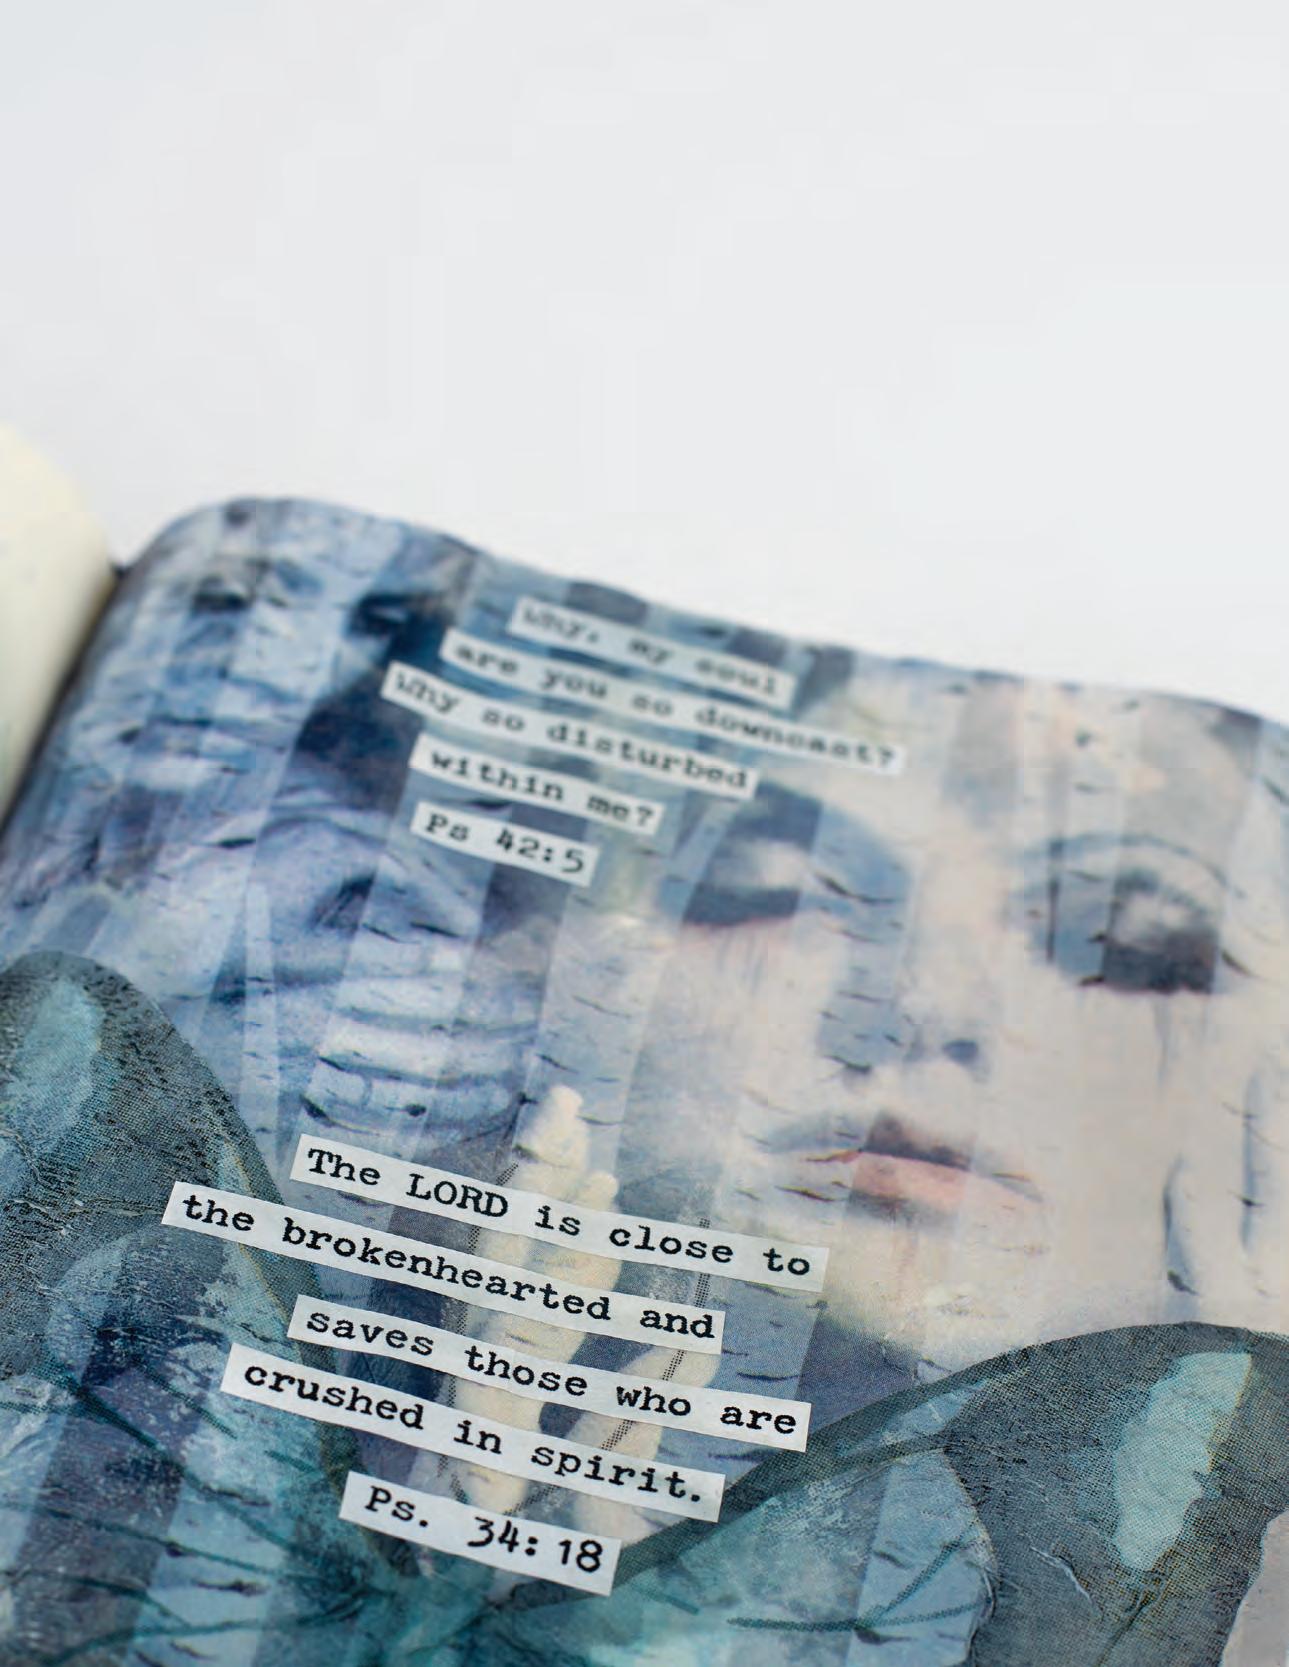 Why, my soul
are you so downcast?
Why so disturbed
within me?
Ps 42:5
The LORD is close to
the brokenhearted and
saves those who are
crushed in spirit.
Ps. 34:18